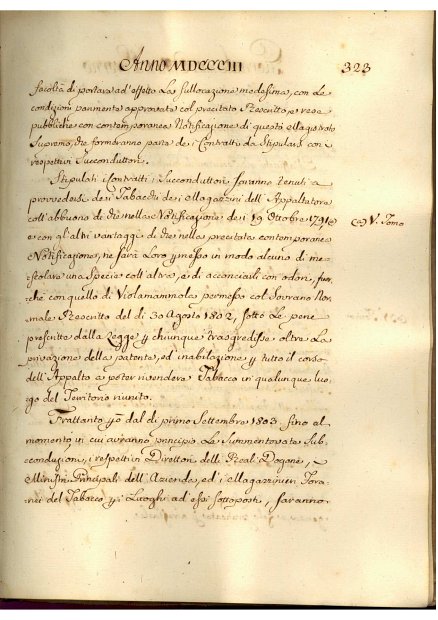 Anno MDCCCIII
323
facoltà di portare ad' effetto La Sullocazione medesima, con Le
condizioni parimente approvate col precitato Rescritto, e rese
pubbliche con contemporanea Notificazione di questo Magistrato
Supremo, che formeranno parte dei Contratti da Stipularsi con i
respettivi Succonduttori.
Stipulati i Contratti i Succonduttori Saranno tenuti a
provvedersi dei Tabacchi dei Magazzini dell' Appaltatore
coll' abbuono di che nella Notificazione dei 19 Ottobre 1791
(a) V. Tomo
e con gl' altri vantaggi di che nella precitata contemporanea
Notificazione, ne sarà Loro permesso in modo alcuno di me=
scolare una Specie coll' altra, e di acconciarli con odori, fuor
chè con quello di Violamammola permesso col Sovrano Nor
male Rescritto del dì 30 Agosto 1802, sotto Le pene
prescritte dalla Legge per chiunque trasgredisse oltre La
privazione della patente, ed' inabilazione per tutto il corso
dell' Appalto a poter rivendere Tabacco in qualunque luo
go del Territorio riunito.
Frattanto però dal dì primo Settembre 1803 fino al
momento in cui avranno principio Le Summentovate Sub
conduzioni, i respettivi Direttori delle Reali Dogane, e
Ministri Principali dell' Azienda, ed' i Magazzinieri Fora
nei del Tabacco per i Luoghi ad' essi sottoposti, Saranno